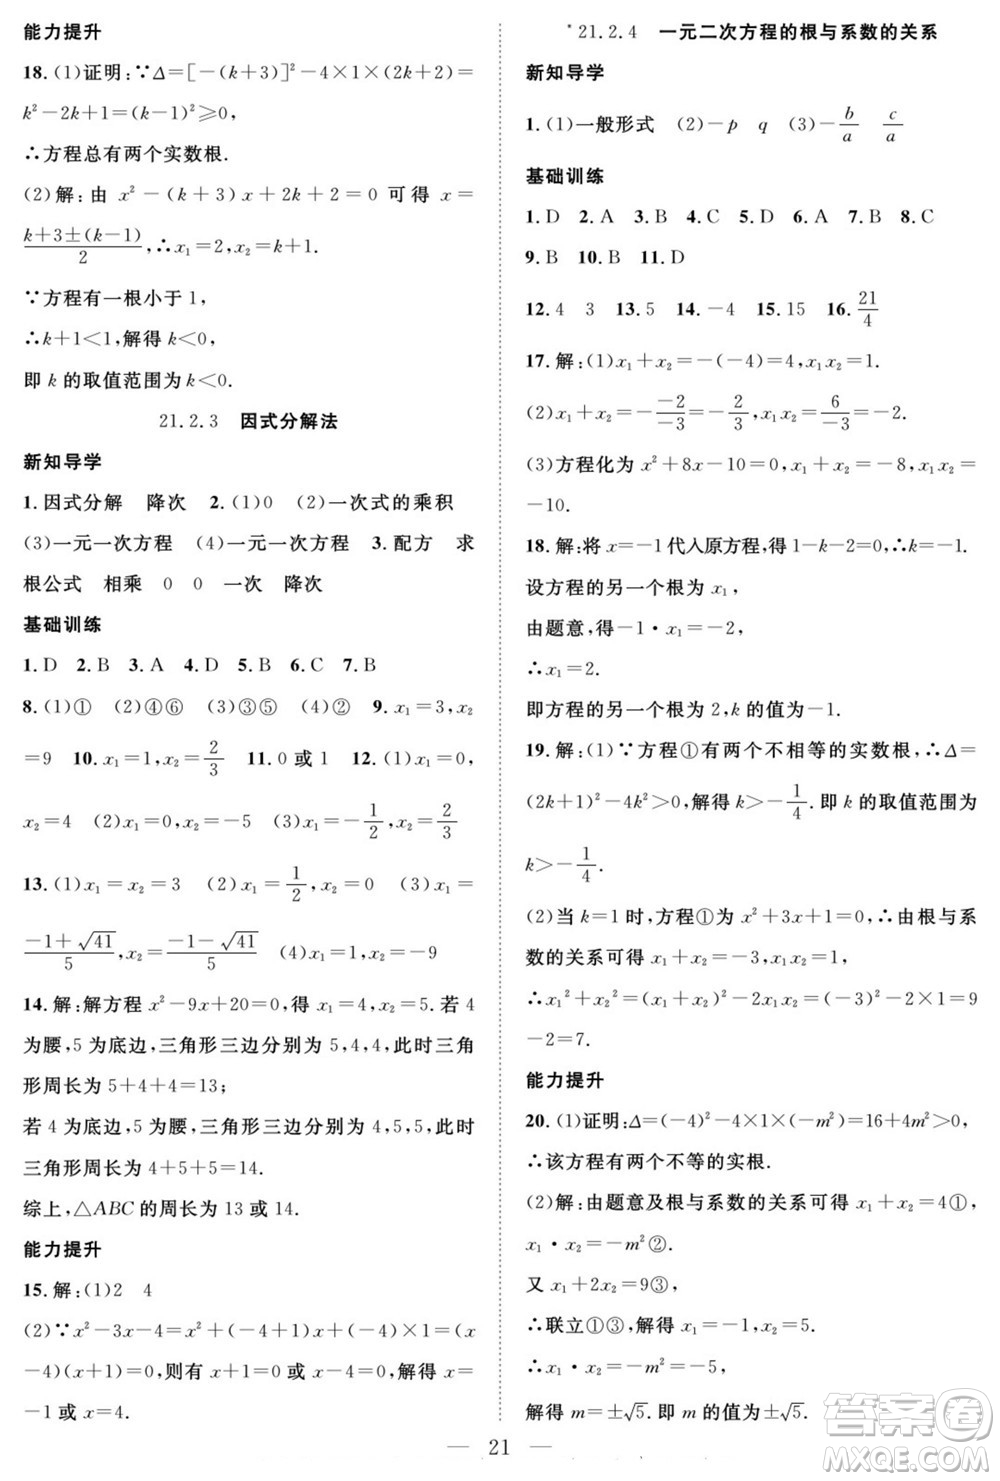 能力提升
18.(1)证明:∵Δ=[-(k+3)]²-4×1×(2k+2)=
k²-2k+1=(k-1)²≥0,
∴方程总有两个实数根.
(2)解:由 x²-(k+3)x+2k+2=0 可得 x=
(k+3±(k-1))/2,∴x₁=2,x₂=k+1.
∵方程有一根小于 1,
∴k+1<1,解得 k<0.
即 k 的取值范围为 k<0.
21.2.3 因式分解法
新知导学
1.因式分解 降次 2.(1)0 (2)一次式的乘积
(3)一元一次方程 (4)一元一次方程 3.配方 求
根公式 相乘 0 0 一次 降次
基础训练
1.D 2.B 3.A 4.D 5.B 6.C 7.B
8.(1)① (2)④⑥ (3)③⑤ (4)② 9.x₁=3,x₂
=9 10.x₁=1,x₂=2/3 11.0 或 1 12.(1)x₁=0,
x₂=4 (2)x₁=0,x₂=-5 (3)x₁=-1/2,x₂=2/3
13.(1)x₁=x₂=3 (2)x₁=1/2,x₂=0 (3)x₁=
(-1+√41)/5,x₂=(-1-√41)/5 (4)x₁=x₂=-9
14.解:解方程 x²-9x+20=0,得 x₁=4,x₂=5.若 4
为腰,5 为底边,三角形三边分别为 5,4,4,此时三角
形周长为 5+4+4=13;
若 4 为底边,5 为腰,三角形三边分别为 4,5,5,此时
三角形周长为 4+5+5=14.
综上,△ABC 的周长为 13 或 14.
能力提升
15.解:(1)2 4
(2)∵x²-3x-4=x²+(-4+1)x+(-4)×1=(x
-4)(x+1)=0,则有 x+1=0 或 x-4=0,解得 x=
-1 或 x=4.
*21.2.4 一元二次方程的根与系数的关系
新知导学
1.(1)一般形式 (2)-p q (3)-b/a c/a
基础训练
1.D 2.A 3.B 4.C 5.D 6.A 7.B 8.C
9.B 10.B 11.D
12.4 3 13.5 14.-4 15.15 16.21/4
17.解:(1)x₁+x₂=-(-4)=4,x₁x₂=1.
(2)x₁+x₂=-(-2)/(-3)=-2/3,x₁x₂=6/(-3)=-2.
(3)方程化为 x²+8x-10=0,x₁+x₂=-8,x₁x₂=
-10.
18.解:将 x=-1 代入原方程,得 1-k-2=0,∴k=-1.
设方程的另一个根为 x₁,
由题意,得-1·x₁=-2,
∴x₁=2.
即方程的另一个根为 2,k 的值为-1.
19.解:(1)∵方程①有两个不相等的实数根,∴Δ=
(2k+1)²-4k²>0,解得 k>-1/4.即 k 的取值范围为
k>-1/4.
(2)当 k=1 时,方程①为 x²+3x+1=0,∴由根与系
数的关系可得 x₁+x₂=-3,x₁x₂=1,
∴x₁²+x₂²=(x₁+x₂)²-2x₁x₂=(-3)²-2×1=9
-2=7.
能力提升
20.(1)证明:Δ=(-4)²-4×1×(-m²)=16+4m²>0,
∴该方程有两个不等的实根.
(2)解:由题意及根与系数的关系可得 x₁+x₂=4①,
x₁·x₂=-m²②.
又 x₁+2x₂=9③,
∴联立①③,解得 x₁=-1,x₂=5.
∴x₁·x₂=-m²=-5,
解得 m=±√5.即 m 的值为±√5.
答案圈
MXQE.COM
— 21 —